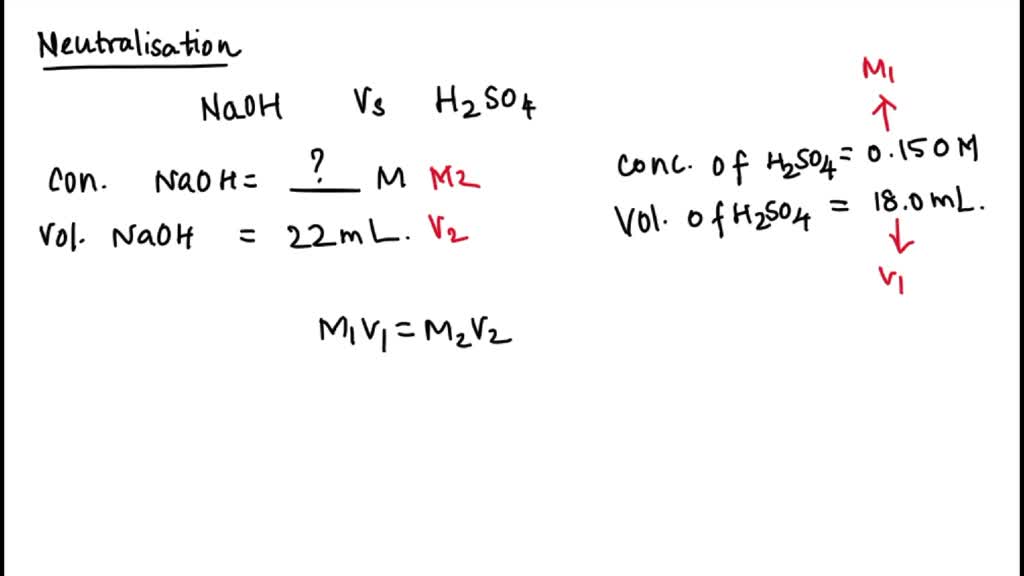 Neutralisation
NaOH Vs H2SO4
Con. NaOH = ? M M2
Vol. NaOH = 22mL. V2
M1
Conc. of H2SO4 = 0.150M
Vol. of H2SO4 = 18.0mL.
V1
M1V1 = M2V2